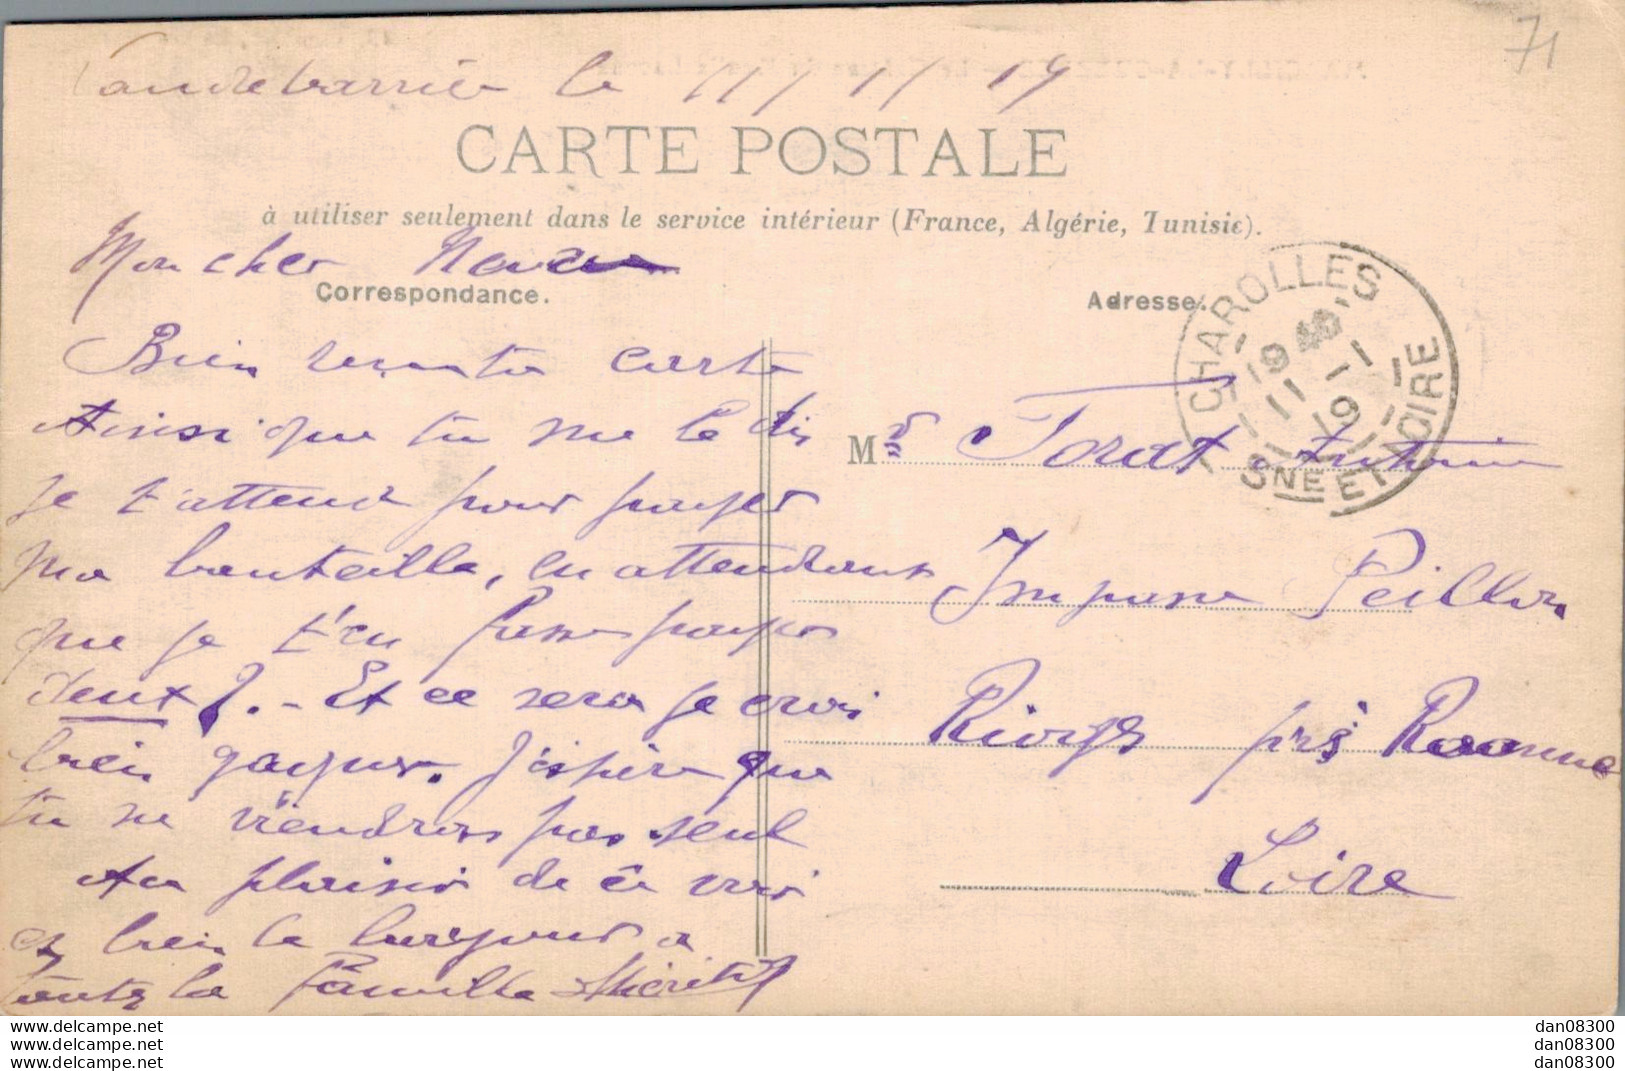 71
Vaudebarrier le 11/1/19
CARTE POSTALE
à utiliser seulement dans le service intérieur (France, Algérie, Tunisie).
Mon cher Neveu
Correspondance.
Bien reçu ta carte
Ainsi que tu me le dis
je t'attend pour payer
ma bouteille, en attendant
que je t'en fasse payer
deux. - Et ce sera je crois
bien gagner. J'espère que
tu ne viendras pas seul
Au plaisir de te voir
et bien le bonjour a
toute la Famille
Adresse.
CHAROLLES
11 - 1
19
SNE ET LOIRE
M Forat Antoine
Impasse Peillon
Riorges près Roanne
Loire
www.delcampe.net
www.delcampe.net
www.delcampe.net
dan08300
dan08300
dan08300